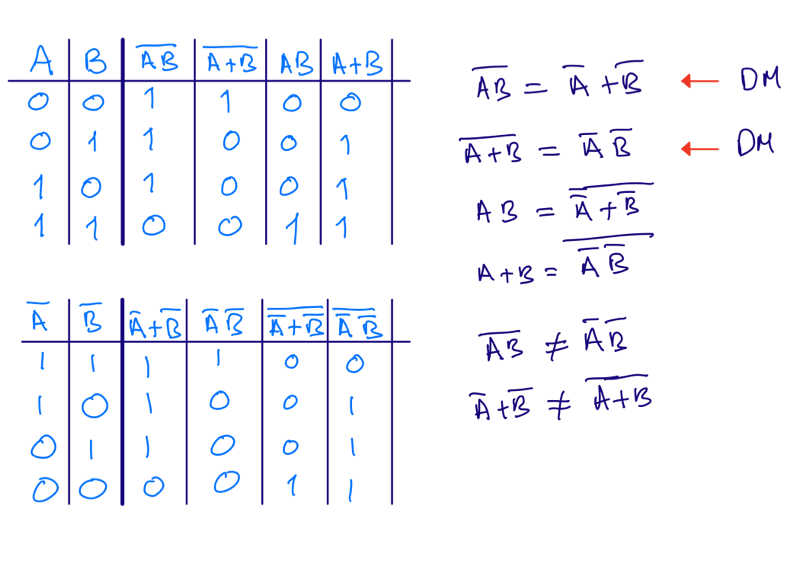 A B A̅B̅ A̅+̅B̅ AB A+B
0 0 1 1 0 0
0 1 1 0 0 1
1 0 1 0 0 1
1 1 0 0 1 1
A̅ B̅ A̅+B̅ A̅ B̅ \overline{A̅+B̅} \overline{A̅ B̅}
1 1 1 1 0 0
1 0 1 0 0 1
0 1 1 0 0 1
0 0 0 0 1 1
A̅B̅ = A̅ + B̅ ← DM
A̅+̅B̅ = A̅ B̅ ← DM
AB = \overline{A̅ + B̅}
A+B = \overline{A̅ B̅}
\overline{AB} ≠ A̅ B̅
A̅+B̅ ≠ \overline{A+B}